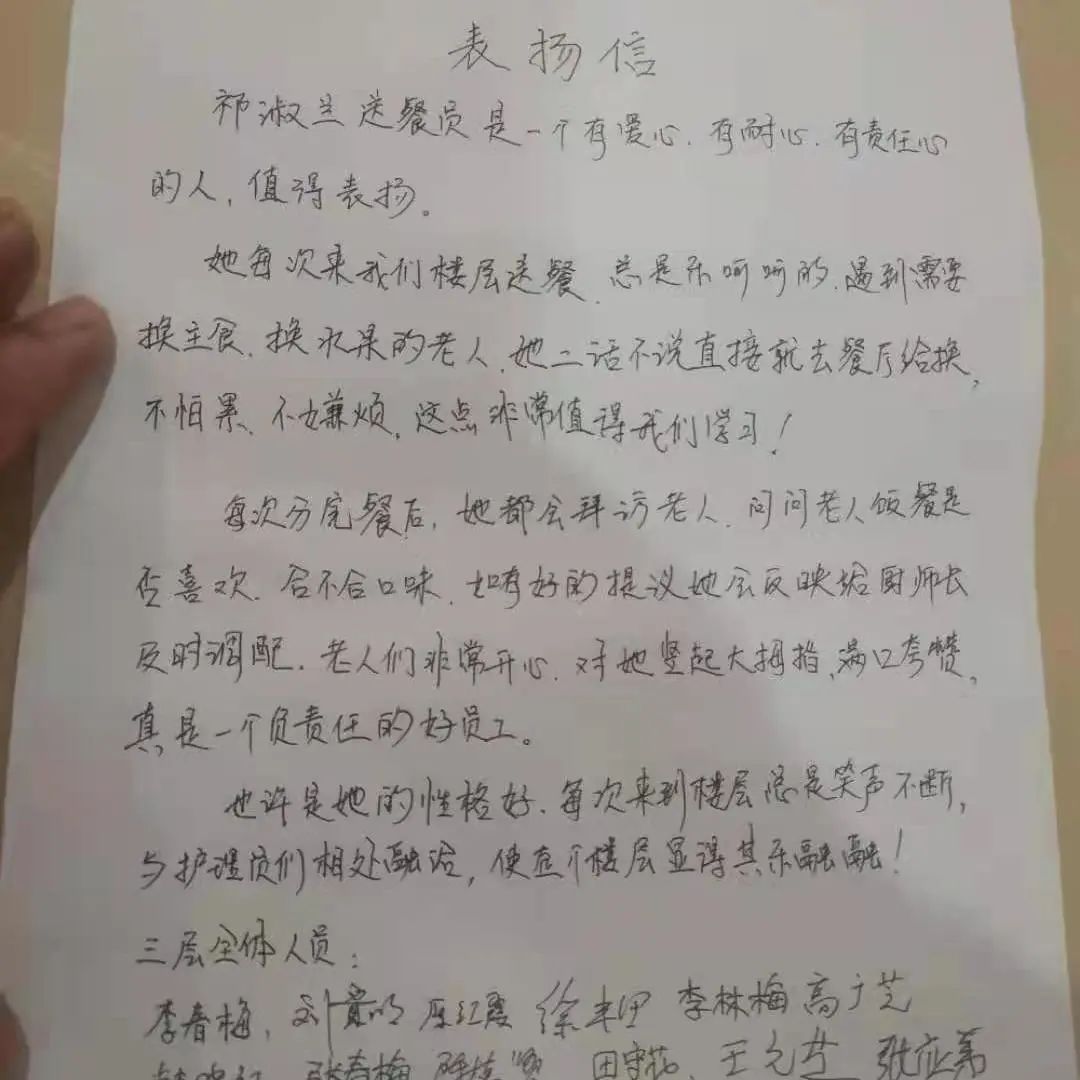 表扬信
祁淑兰送餐员是一个有爱心、有耐心、有责任心
的人，值得表扬。
她每次来我们楼层送餐、总是乐呵呵的、遇到需要
换主食、换水果的老人、她二话不说直接就去餐厅给换，
不怕累、不嫌烦，这点非常值得我们学习！
每次分完餐后，她都会拜访老人、问问老人饭餐是
否喜欢、合不合口味、如有好的提议她会反映给厨师长
及时调配、老人们非常开心、对她竖起大拇指、满口夸赞，
真是一个负责任的好员工。
也许是她的性格好、每次来到楼层总是笑声不断，
与护理员们相处融洽，使这个楼层显得其乐融融！
三层全体人员：
李春梅、刘 李林梅 高广芝
张春梅 田守花、王允芝